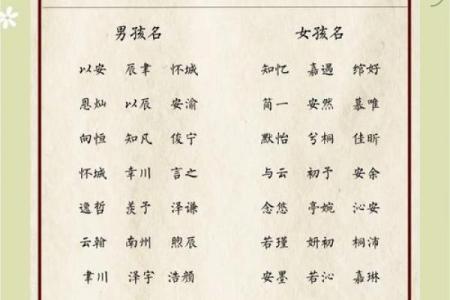 男孩名 女孩名
以安 辰聿 怀城 知忆 嘉遇 绾好
恩灿 以辰 安渝 简一 安然 慕唯
向恒 知凡 俊宁 默怡 兮桐 佳昕
怀城 聿川 言之 与云 初予 安余
逸哲 羡予 泽谦 念悠 亭婉 沁安
云翰 南州 煦辰 若瑾 妍初 桐沛
聿川 泽宇 浩颜 安墨 若沁 嘉琳